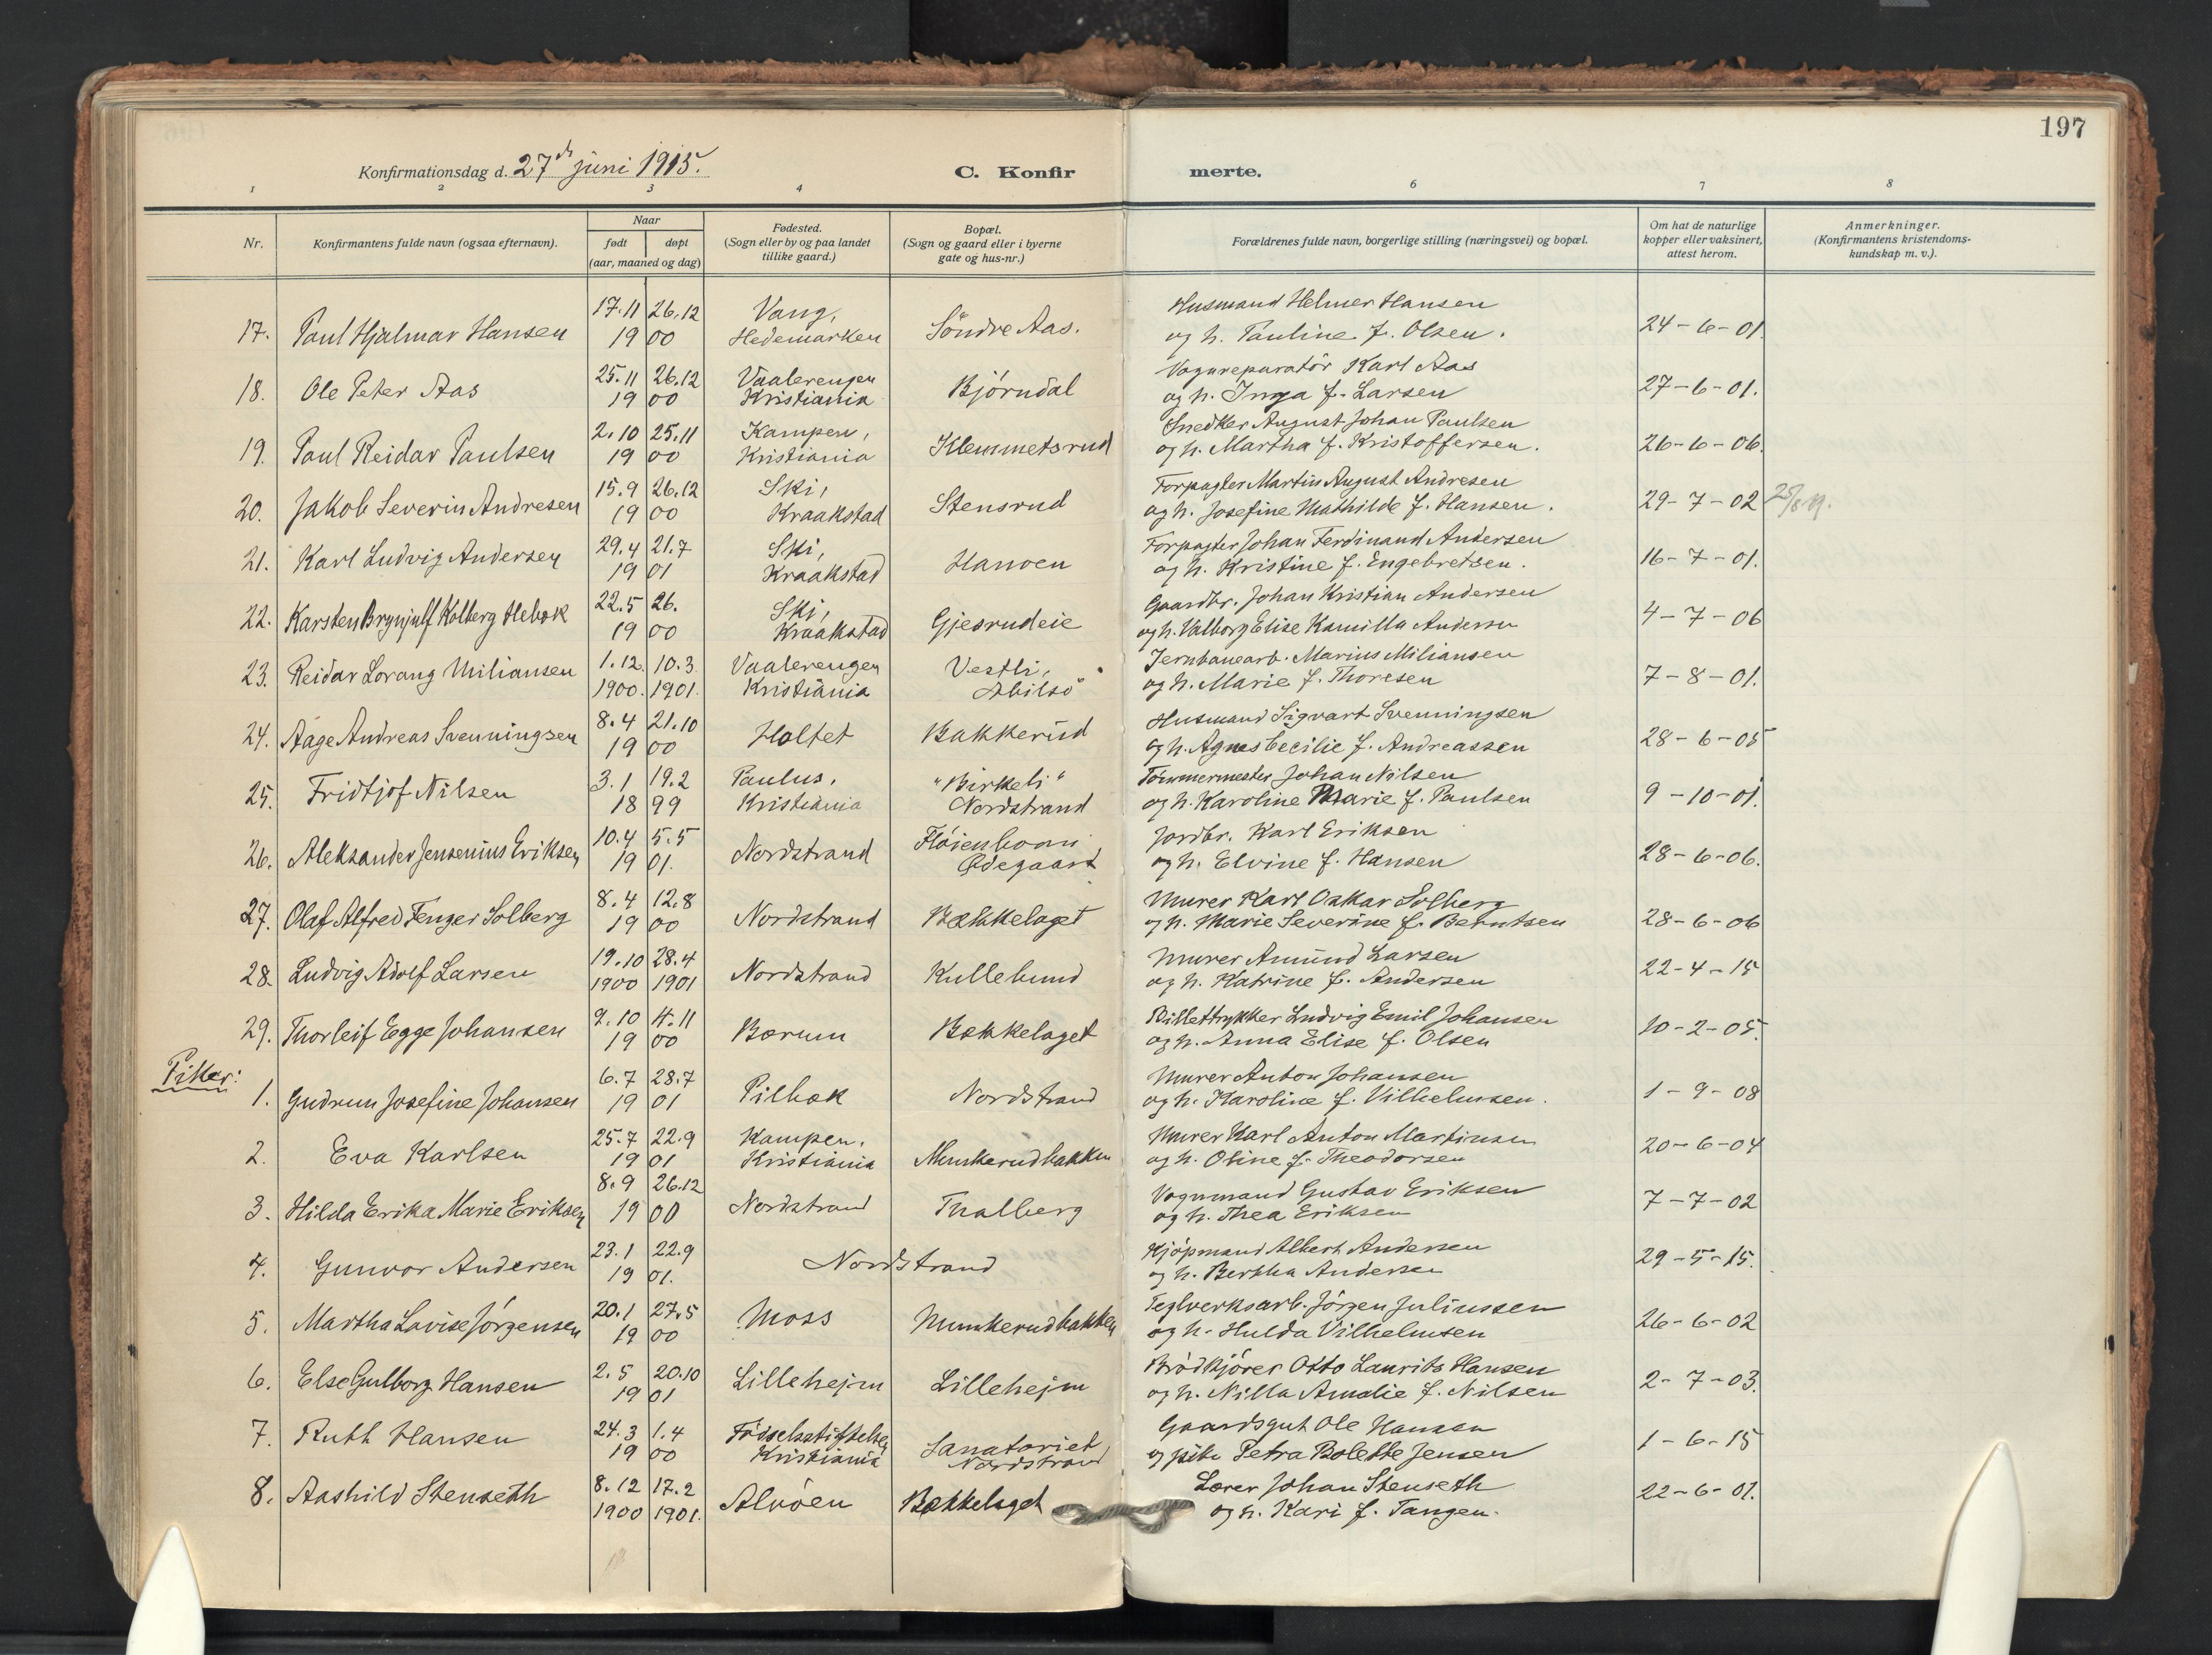 197
Konfirmationsdag d. 27de juni 1915.
C. Konfir
merte.
1 2 3 4 6 7 8
Nr.
Konfirmantens fulde navn (ogsaa efternavn).
Naar
født døpt
(aar, maaned og dag)
Fødested.
(Sogn eller by og paa landet
tillike gaard.)
Bopæl.
(Sogn og gaard eller i byerne
gate og hus-nr.)
Forældrenes fulde navn, borgerlige stilling (næringsvei) og bopæl.
Om hat de naturlige
kopper eller vaksinert,
attest herom.
Anmerkninger.
(Konfirmantens kristendoms-
kundskap m. v.).
17.11 26.12 Vang, Husmand Helmer Hansen
17. Paul Hjalmar Hansen 19 00 Hedemarken Söndre Aas. og h. Pauline f. Olsen. 24-6-01.
25.11 26.12 Vaalerengen Vognreparatör Karl Aas
18. Ole Peter Aas 19 00 Kristiania Björndal og h. Inga f. Larsen 27-6-01.
2.10 25.11 Kampen, Snedker August Johan Paulsen
19. Paul Reidar Paulsen 19 00 Kristiania Klemmetsrud og h. Martha f. Kristoffersen. 26-6-06.
15.9 26.12 Ski, Forpagter Martin August Andresen
20. Jakob Severin Andresen 19 00 Kraakstad Stensrud og h. Josefine Mathilde f. Hansen. 29-7-02
29.4 21.7 Ski, Forpagter Johan Ferdinand Andersen
21. Karl Ludvig Andersen 19 01 Kraakstad Hanoen og h. Kristine f. Engebretsen. 16-7-01.
22.5 26. Ski, Gaardbr. Johan Kristian Andersen
22. Karsten Brynjulf Kolberg Hebæk 19 00 Kraakstad Gjesrudeie og h. Valborg Elise Kamilla Andersen 4-7-06
1.12. 10.3 Vaalerengen Vestli, Jernbanearb. Marius Miliansen
23. Reidar Lorang Miliansen 1900. 1901. Kristiania Abilsö og h. Marie f. Thoresen 7-8-01.
8.4 21.10 Husmand Sigvart Svenningsen
24. Aage Andreas Svenningsen 19 00 Holtet Bakkerud og h. Agnes Cecilie f. Andreassen 28-6-05
3.1 19.2 Paulus, "Birkeli" Tömmermester Johan Nilsen
25. Fridtjof Nilsen 18 99 Kristiania Nordstrand og h. Karoline Marie f. Paulsen 9-10-01.
10.4 5.5 Flöienbom Jordbr. Karl Eriksen
26. Aleksander Jensenius Eriksen 19 01. Nordstrand Ødegaard og h. Elvine f. Hansen 28-6-06.
8.4 12.8 Murer Karl Oskar Solberg
27. Olaf Alfred Fenger Solberg 19 00 Nordstrand Bækkelaget og h. Marie Severine f. Berntsen 28-6-06
19.10 28.4 Murer Amund Larsen
28. Ludvig Adolf Larsen 1900 1901 Nordstrand Kullebund og h. Katrine f. Andersen 22-4-15
9.10 4.11 Billettrykker Ludvig Emil Johansen
29. Thorleif Egge Johansen 19 00 Bærum Bækkelaget og h. Anna Elise f. Olsen 10-2-05.
Piker:
6.7 28.7 Murer Anton Johansen
1. Gudrun Josefine Johansen 19 01 Pilbæk Nordstrand og h. Karoline f. Vilhelmsen. 1-9-08
25.7 22.9 Kampen, Murer Karl Anton Martinsen
2. Eva Karlsen 19 01 Kristiania Munkerudbakken og h. Oline f. Theodorsen 20-6-04
8.9 26.12 Vognmand Gustav Eriksen
3. Hilda Erika Marie Eriksen 19 00 Nordstrand Thalberg og h. Thea Eriksen 7-7-02
23.1 22.9 Kjöpmand Albert Andersen
4. Gunvor Andersen 19 01. Nordstrand og h. Bertha Andersen 29-5-15.
20.1 27.5 Teglverksarb. Jörgen Juliussen
5. Martha Lovise Jörgensen 19 00 Moss Munkerudbakken og h. Hulda Vilhelmsen 26-6-02
2.5 20.10 Brödkjörer Otto Laurits Hansen
6. Else Gulborg Hansen 19 01 Lillehejm Lillehejm og h. Nilla Amalie f. Nilsen 2-7-03.
24.3 1.4 Födselsstiftelsen Sanatoriet, Gaardsgut Ole Hansen
7. Ruth Hansen 19 00 Kristiania Nordstrand og pike Petra Bolette Jensen 1-6-15
8.12 17.2 Lærer Johan Stenseth
8. Aashild Stenseth 1900 1901. Alvöen Bækkelaget og h. Kari f. Tangen. 22-6-01.